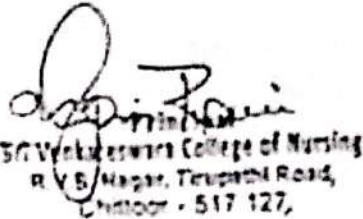 Sri Venkateswara College of Nursing
R.V.S. Nagar, Tirupathi Road,
Chittoor - 517 127,